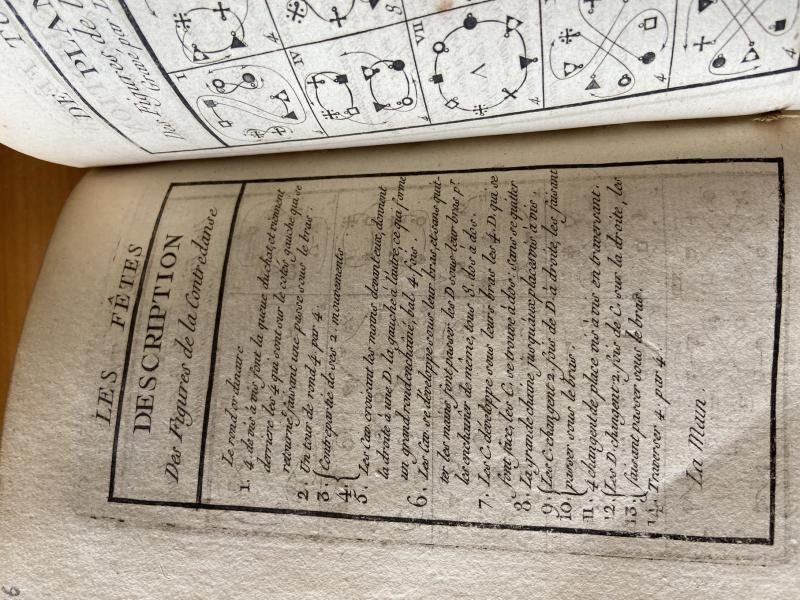 LES FÊTES
DESCRIPTION
Des Figures de la Contredanse
Le rond ordinaire
1. 4. de vis à vis font la queue du chat, et viennent
derriere les 4 qui sont sur le cotés gauche qui se
retourne faisant une passe sous le bras.
2. Un tour de rond 4. par 4.
3. Contrepartie de ses 2. mouvements
4.
5. Les Cav. croisant les mains devant eux, donnent
la droite à une D. la gauche à l'autre, ce qui forme
un grand rond enchaîné, bal. 4. fois.
6. Les Cav. se développe sous leur bras, et sans quit-
ter les mains font passer les D sous leur bras pr.
les enchaîner de même, tous 8. dos à dos.
7. Les C. développe sous leurs bras les 4. D. qui se
font face, les C. se trouve à dos. Sans se quitter
8. La grande chaine jusqu'aux places vis à vis.
9. Les C. changent 2. fois de D. à droite, les faisant
10. passer sous le bras.
11. 4 changent de place vis à vis en traversant.
12. Les D. changent 2. fois de C. sur la droite, les
13. faisant passer sous le bras.
14. Traverser 4. par 4.
La Main.
6
PLAN
Des Figures de l
I
4
IV
VII
V
4
4
4